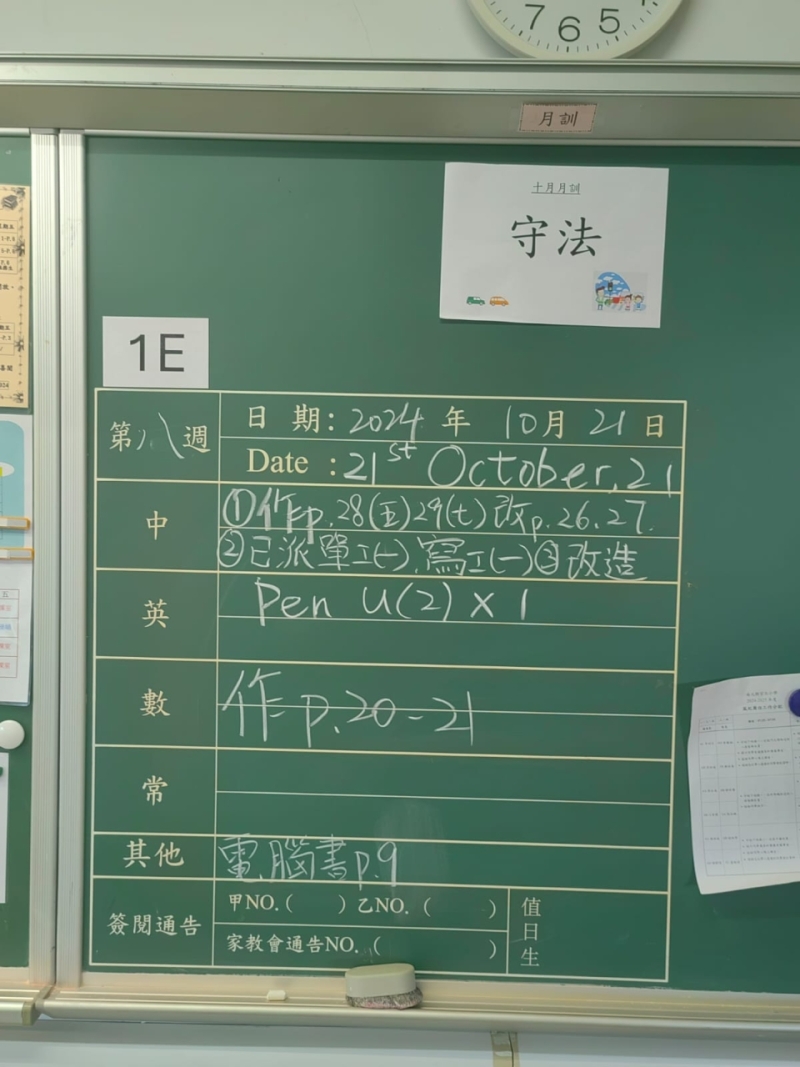 7 6 5
月訓
十月月訓
守法
1E
第八週
日 期: 2024 年 10月 21 日
Date : 21st October, 21
中
①作p.28(五)29(七)改p.26,27.
②已派單工(一),寫工(一)③改造
英
Pen U(2) x 1
數
作p.20-21
常
其他
電腦書p.9
簽閱通告
甲NO.( ) 乙NO. ( )
家教會通告NO. ( )
值日生